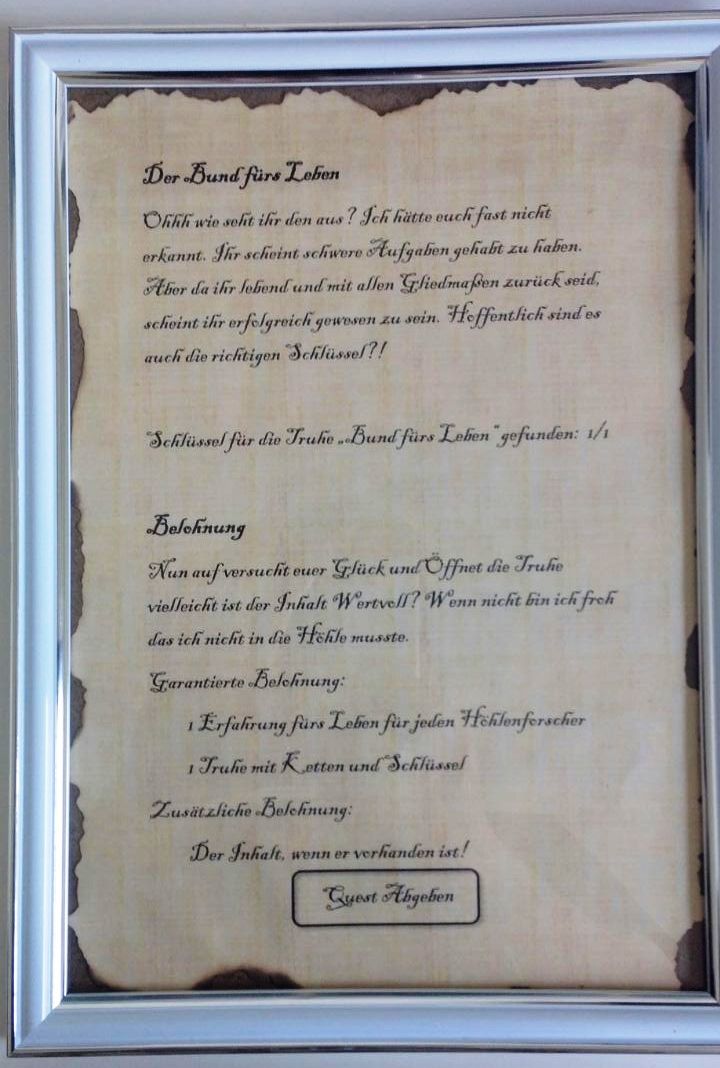 Der Bund fürs Leben
Ohhh wie seht ihr den aus? Ich hätte euch fast nicht
erkannt. Ihr scheint schwere Aufgaben gehabt zu haben.
Aber da ihr lebend und mit allen Gliedmaßen zurück seid,
scheint ihr erfolgreich gewesen zu sein. Hoffentlich sind es
auch die richtigen Schlüssel?!
Schlüssel für die Truhe „Bund fürs Leben“ gefunden: 1/1
Belohnung
Nun auf versucht euer Glück und Öffnet die Truhe
vielleicht ist der Inhalt Wertvoll? Wenn nicht bin ich froh
das ich nicht in die Höhle musste.
Garantierte Belohnung:
1 Erfahrung fürs Leben für jeden Höhlenforscher
1 Truhe mit Ketten und Schlüssel
Zusätzliche Belohnung:
Der Inhalt, wenn er vorhanden ist!
Quest Abgeben